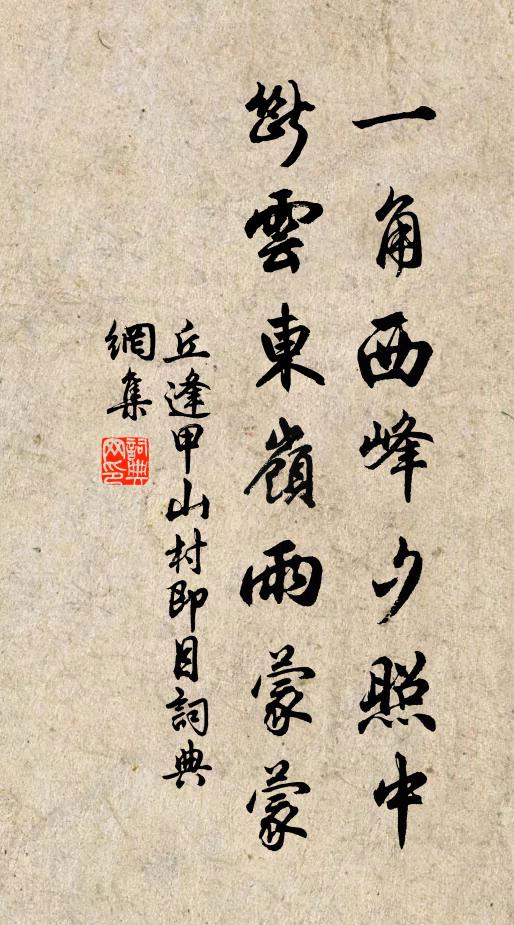 一角西峰夕照中
斷雲東嶺雨蒙蒙
丘逢甲山村即目詞典
網集
詞典網印